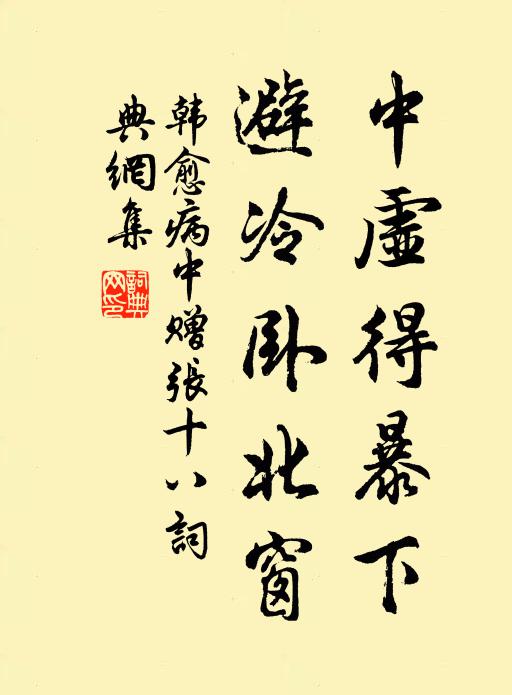 中虚得暴下
避冷卧北窗
韩愈病中赠張十八詞
典網集
詞典网印